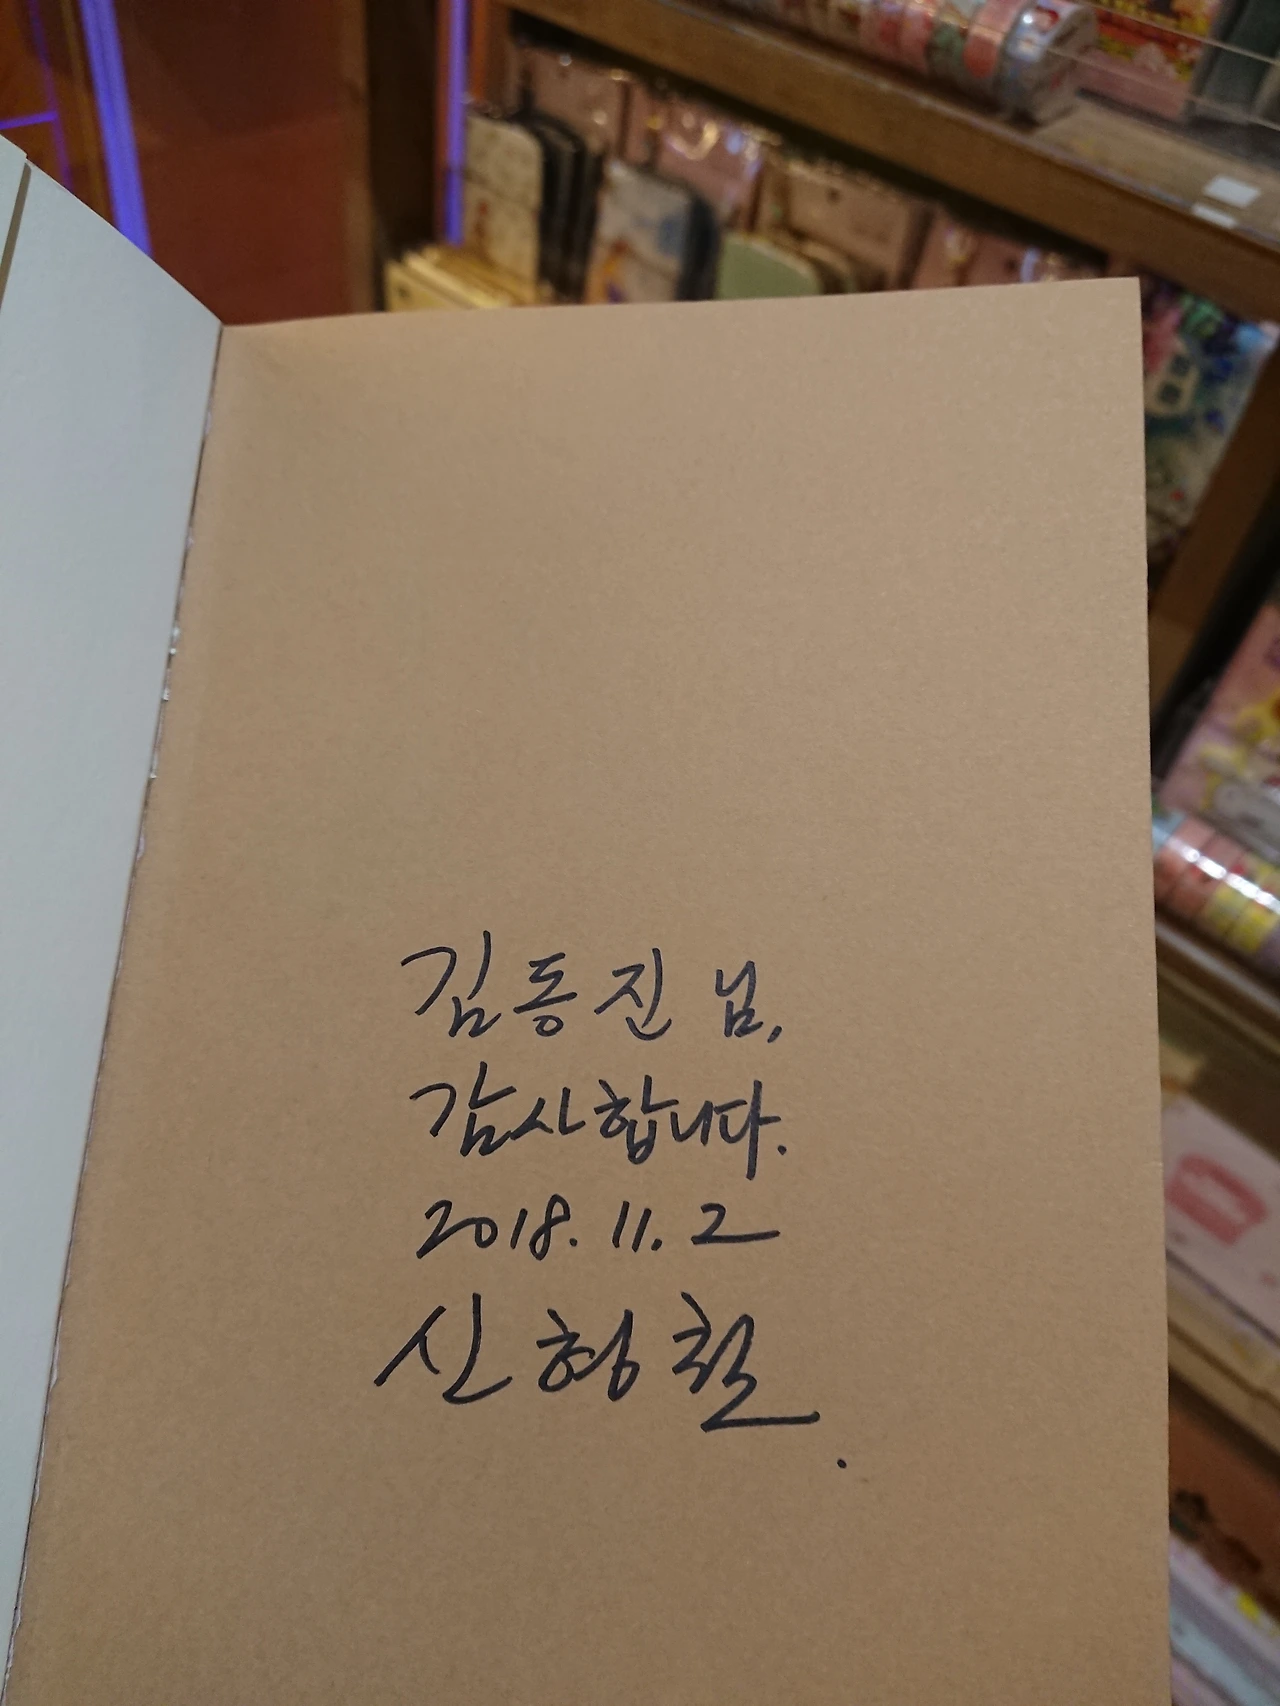 김동진 님,
감사합니다.
2018. 11. 2
신형철.